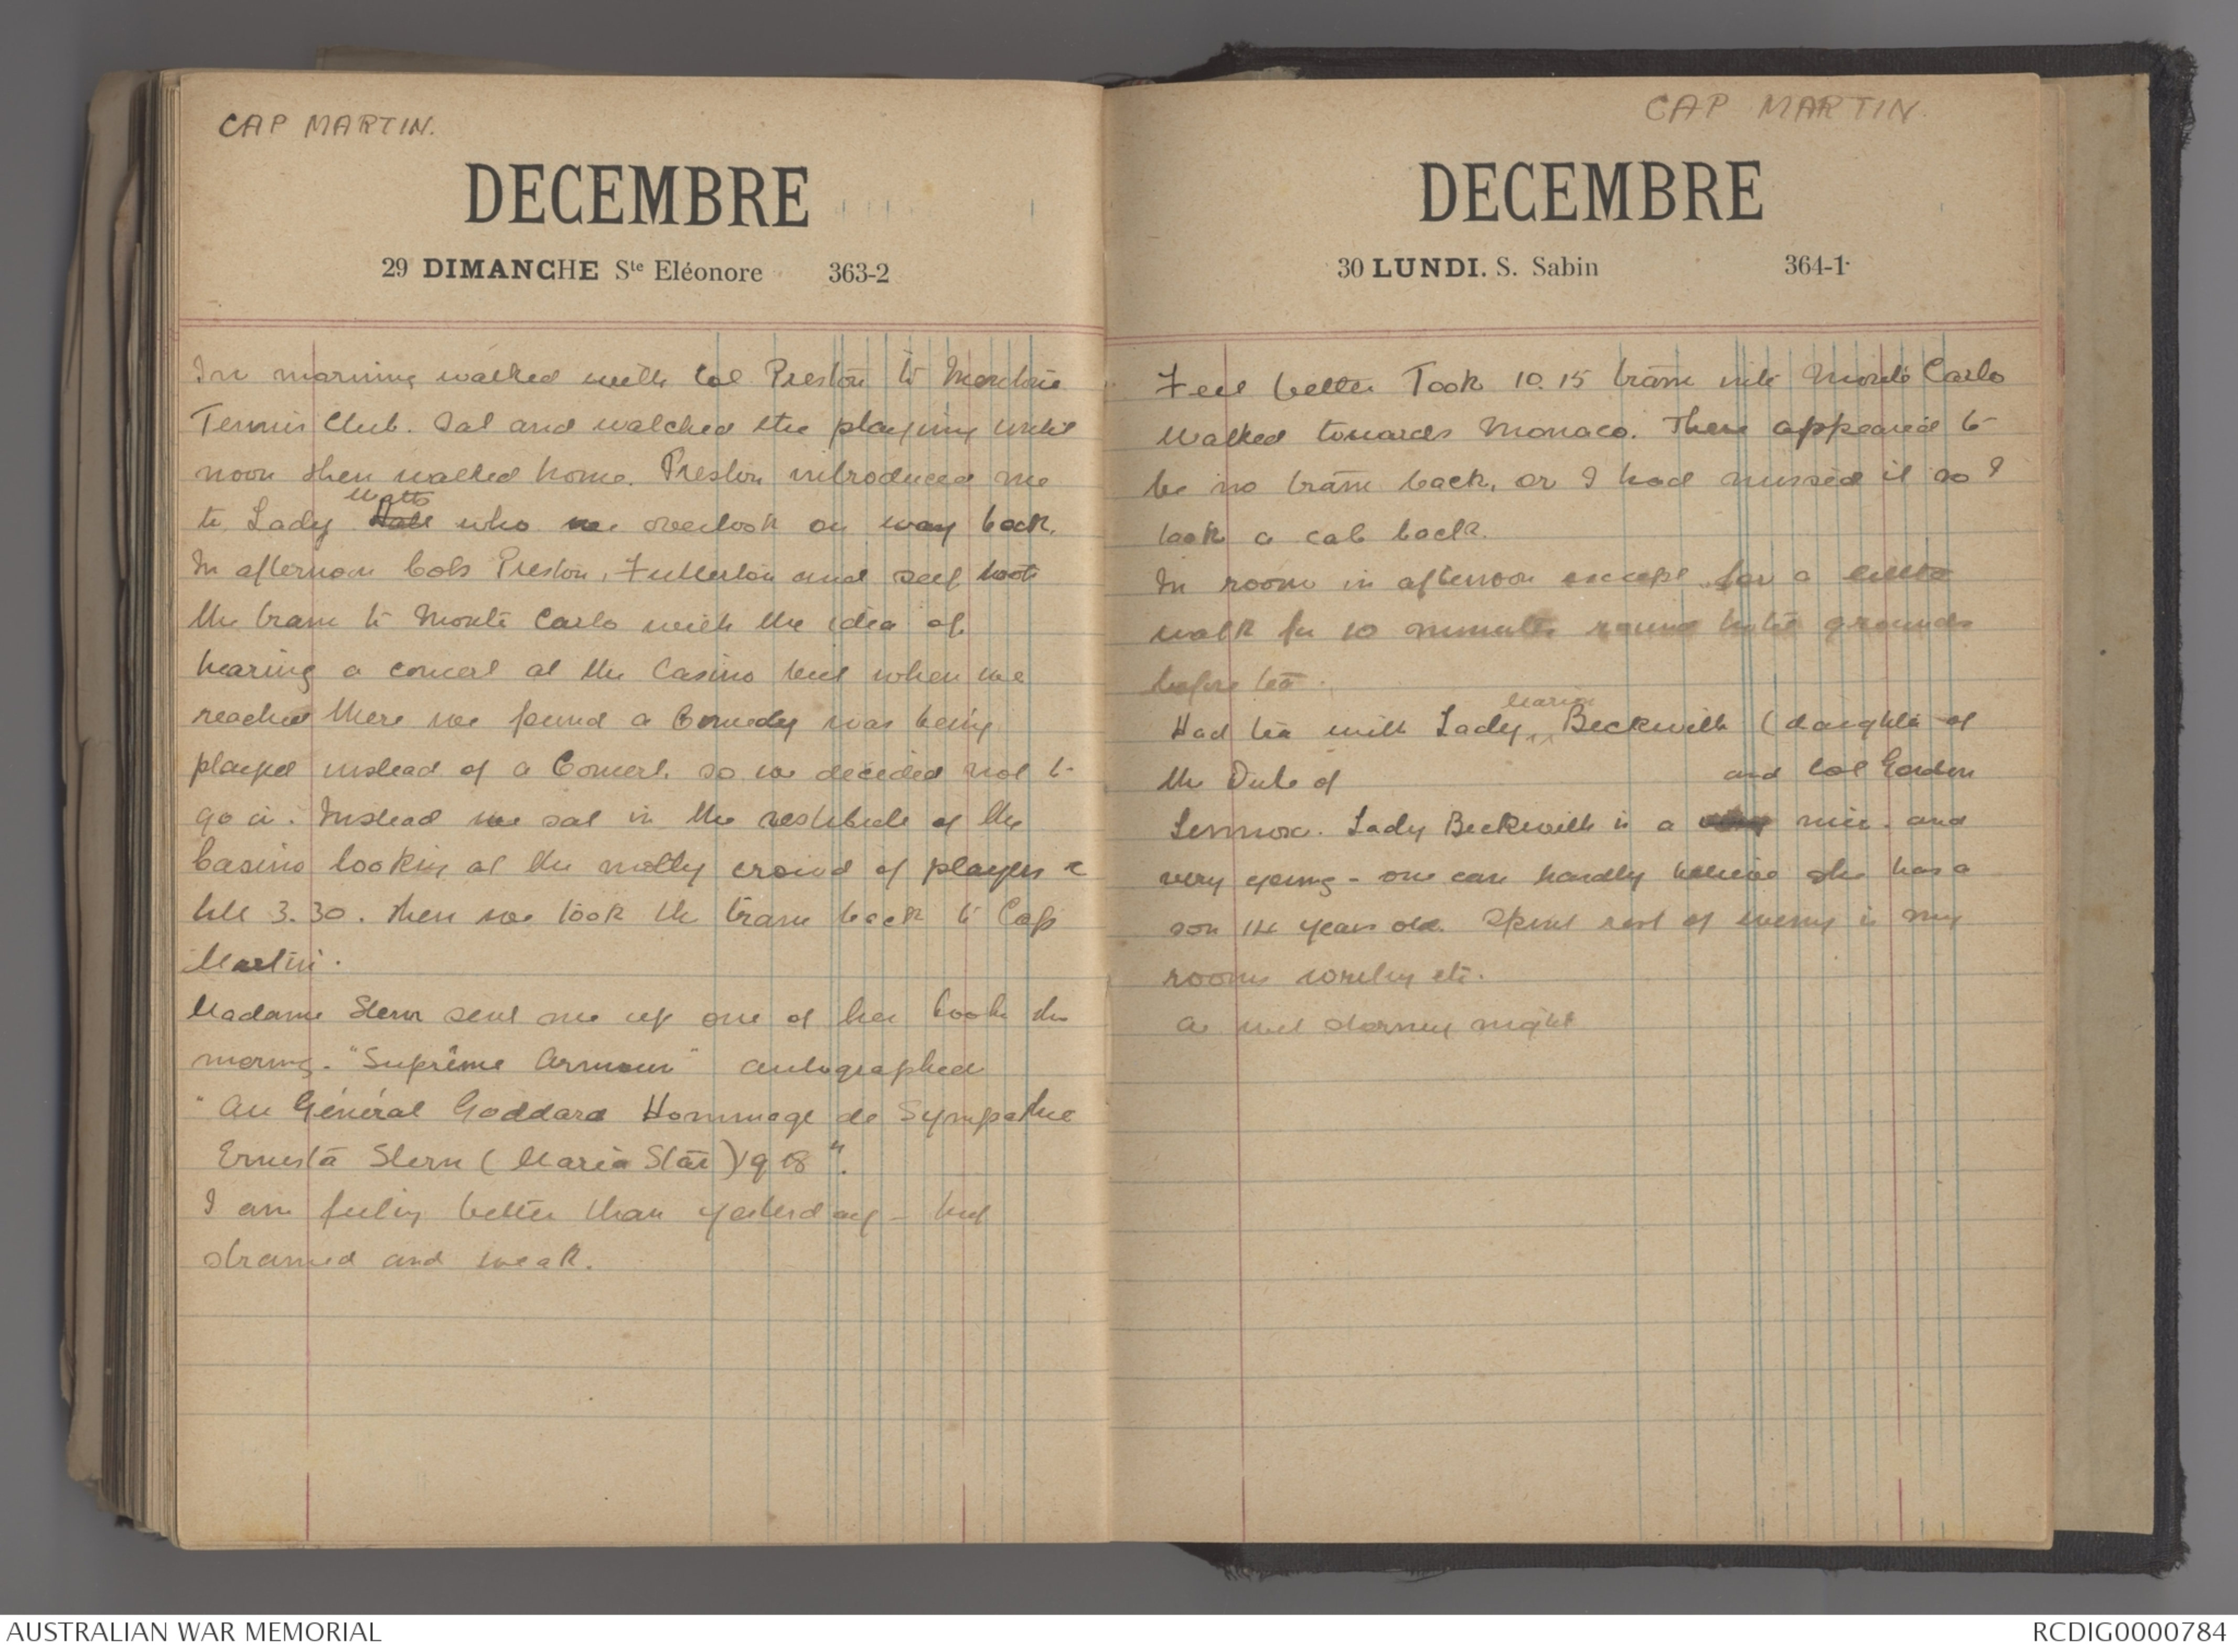 CAP MARTIN.
DECEMBRE
29 DIMANCHE Ste Eléonore 363-2
In morning walked with Col Preston to Mentone
Tennis Club. Sat and watched the playing until
noon then walked home. Preston introduced me
Watts
to Lady who we overlook on way back.
In afternoon Cols Preston, Fullerton and self took
the tram to Monte Carlo with the idea of
hearing a concert at the Casino but when we
reached there we found a Comedy was being
played instead of a Concert. so we decided not to
go in. Instead we sat in the vestibule of the
Casino looking at the motly crowd of players &
till 3.30. Then we took the tram back to Cap
Martin.
Madame Stern sent me up one of her books this
morng. "Suprême Armour" autographed
"Au Général Goddard Hommage de Sympathie
Ernesta Stern (Maria Star) 1918".
I am feeling better than yesterday - but
strained and weak.
CAP MARTIN.
DECEMBRE
30 LUNDI. S. Sabin 364-1
Feel better Took 10.15 tram into Monte Carlo
Walked towards Monaco. There appeared to
be no tram back, or I had missed it so I
took a cab back.
In room in afternoon except for a little
walk for 10 minutes round hotel grounds
before tea.
Had tea with Lady Beckwith (daughter of
the Duke of and Col Gordon
Lennox. Lady Beckwith is a nice and
very young - one can hardly believe she has a
son 14 years old. Spent rest of eveng in my
room writing etc.
A wet stormy night
AUSTRALIAN WAR MEMORIAL
RCDIG0000784